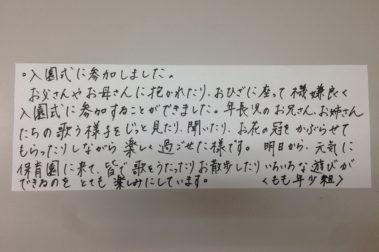 ○入園式に参加しました。
お父さんやお母さんに抱かれたり、おひざに座って機嫌良く
入園式に参加することができました。年長児のお兄さん、お姉さん
たちの歌う様子をじっと見たり、聞いたり、お花の冠をかぶらせて
もらったりしながら楽しく過ごせた様です。明日から、元気に
保育園に来て、皆で歌をうたったりお散歩したりいろいろな遊びが
できるのをとても楽しみにしています。 〈もも年少組〉